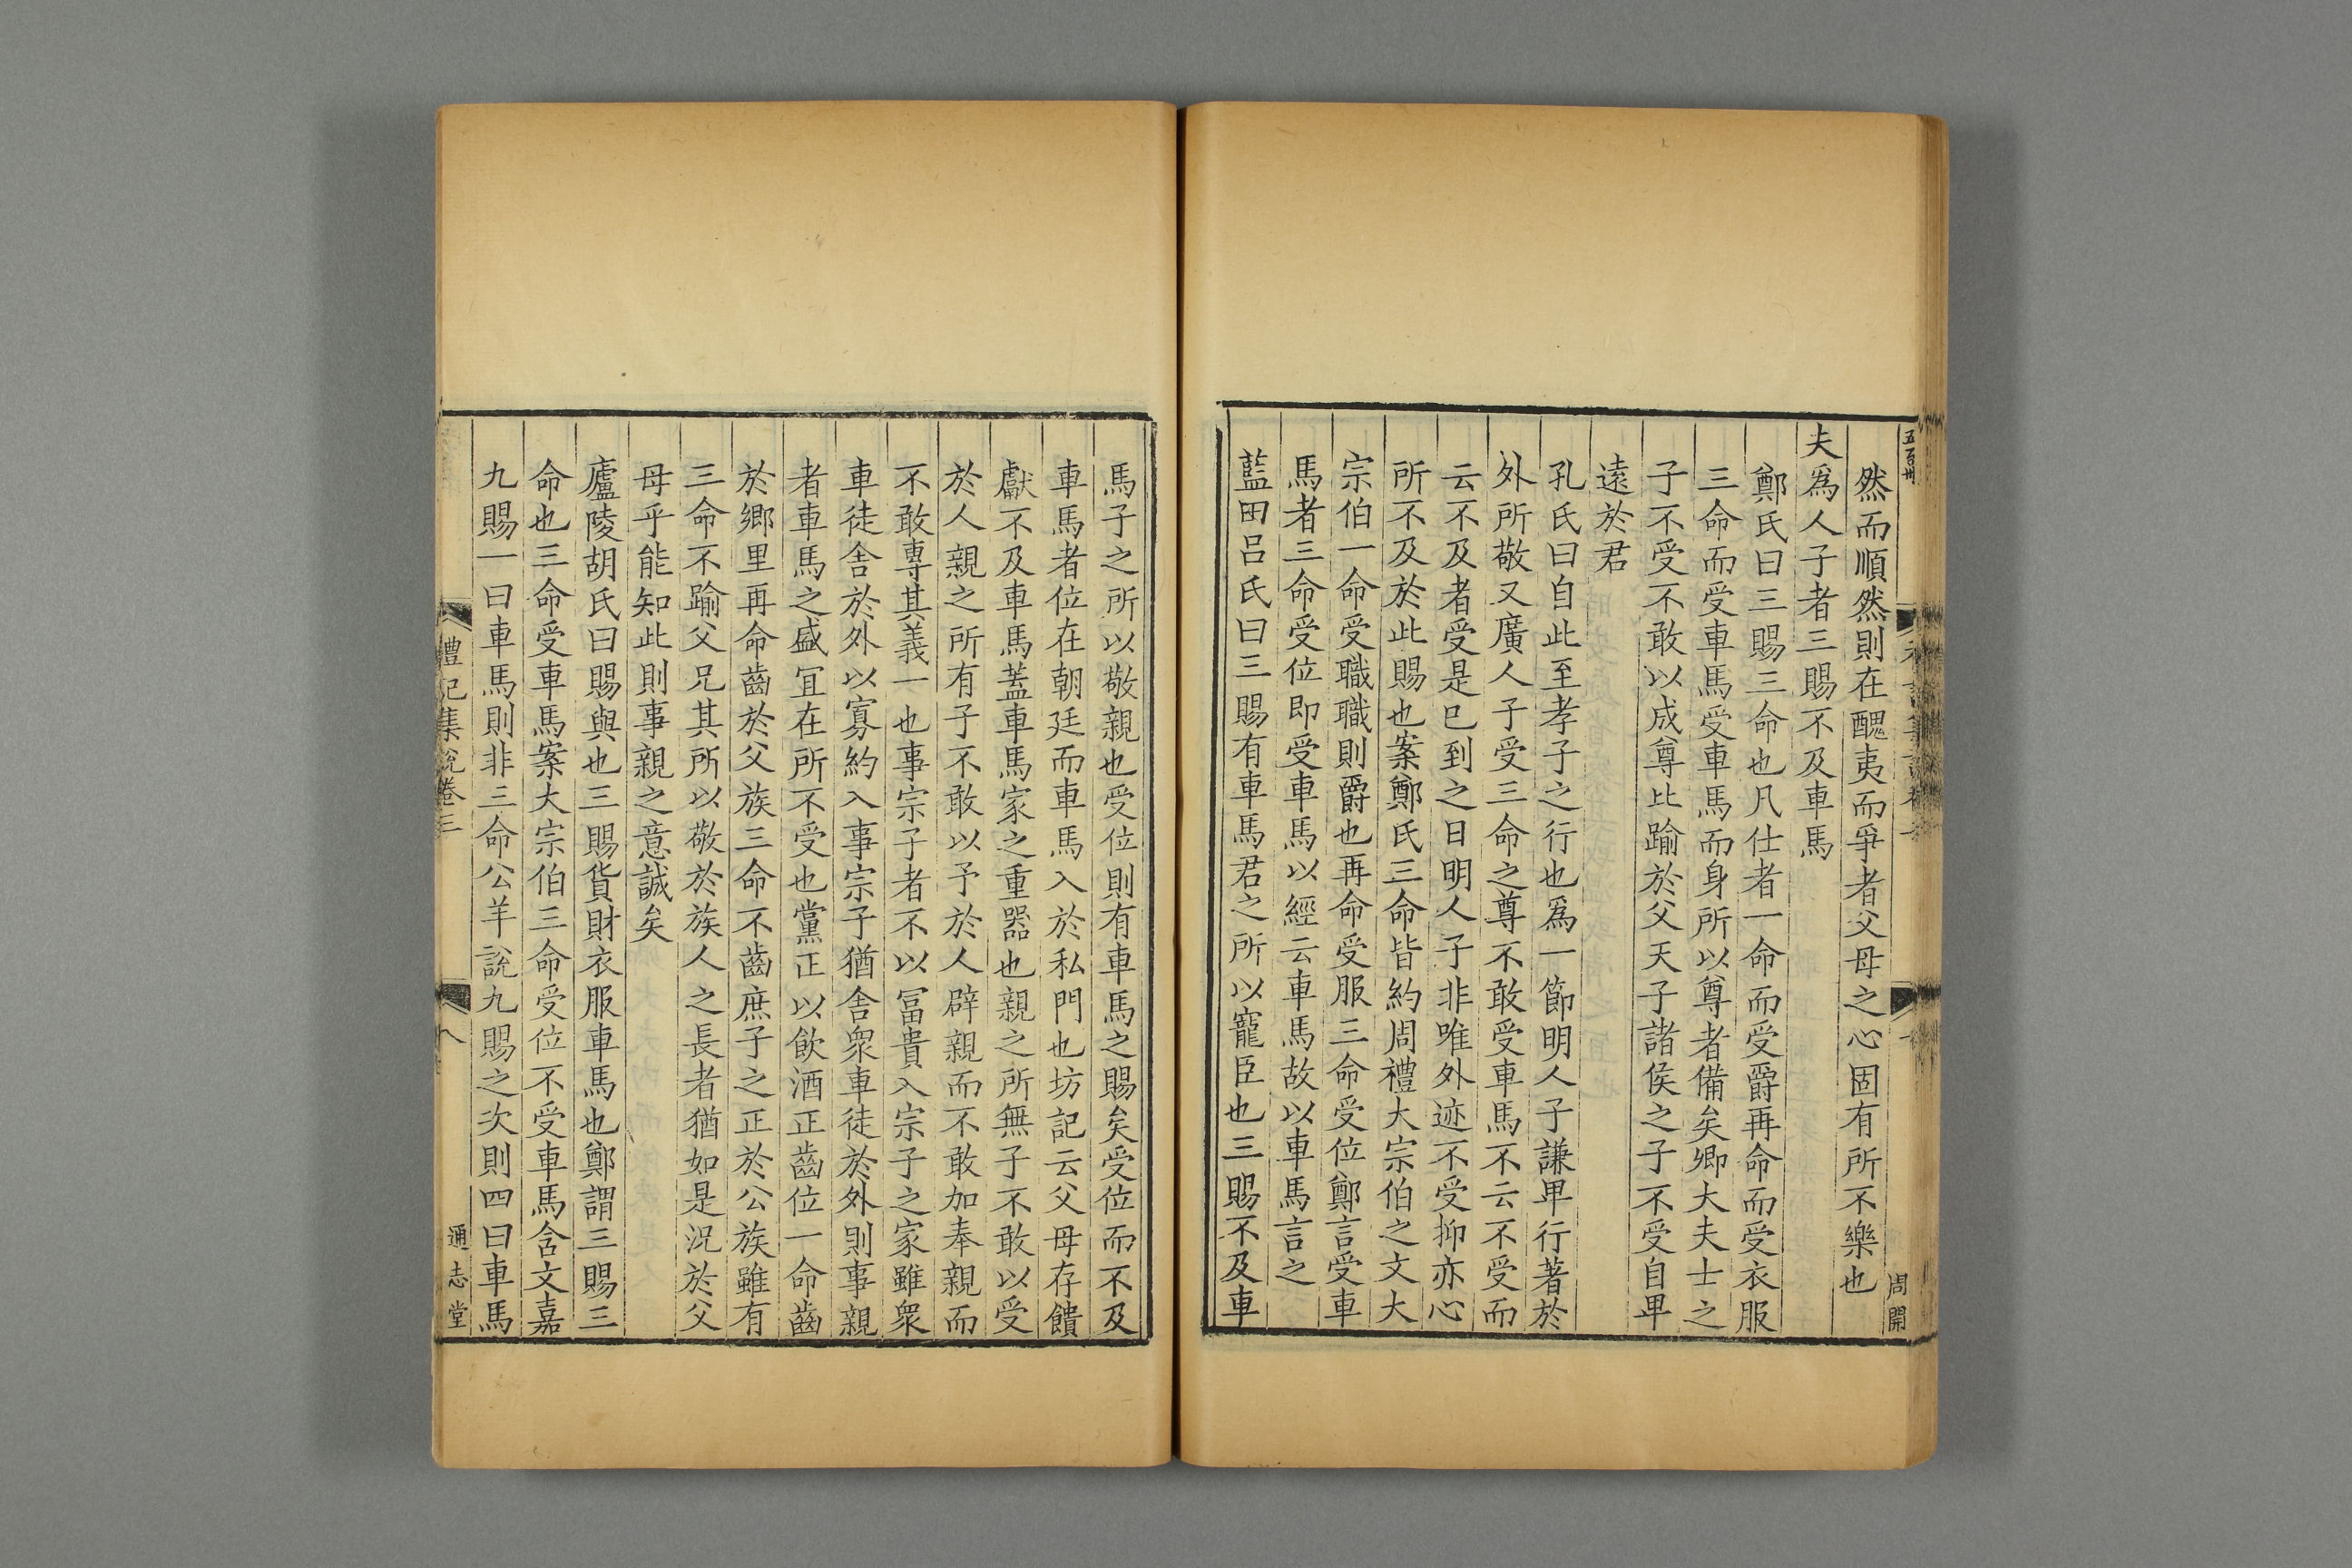 五百卅
周開
然而順然則在醜夷而爭者父母之心固有所不樂也
夫爲人子者三賜不及車馬
鄭氏曰三賜三命也凡仕者一命而受爵再命而受衣服
三命而受車馬受車馬而身所以尊者備矣卿大夫士之
子不受不敢以成尊比踰於父天子諸侯之子不受自卑
遠於君
孔氏曰自此至孝子之行也爲一節明人子謙卑行著於
外所敬又廣人子受三命之尊不敢受車馬不云不受而
云不及者受是已到之日明人子非唯外迹不受抑亦心
所不及於此賜也案鄭氏三命皆約周禮大宗伯之文大
宗伯一命受職職則爵也再命受服三命受位鄭言受車
馬者三命受位即受車馬以經云車馬故以車馬言之
藍田呂氏曰三賜有車馬君之所以寵臣也三賜不及車
馬子之所以敬親也受位則有車馬之賜矣受位而不及
車馬者位在朝廷而車馬入於私門也坊記云父母存饋
獻不及車馬蓋車馬家之重器也親之所無子不敢以受
於人親之所有子不敢以予於人辟親而不敢加奉親而
不敢專其義一也事宗子者不以冨貴入宗子之家雖衆
車徒舍於外以寡約入事宗子猶舍衆車徒於外則事親
者車馬之盛冝在所不受也黨正以飲酒正齒位一命齒
於鄉里再命齒於父族三命不齒庶子之正於公族雖有
三命不踰父兄其所以敬於族人之長者猶如是況於父
母乎能知此則事親之意誠矣
廬陵胡氏曰賜與也三賜貨財衣服車馬也鄭謂三賜三
命也三命受車馬案大宗伯三命受位不受車馬含文嘉
九賜一曰車馬則非三命公羊說九賜之次則四曰車馬
禮記集說卷三
八
通志堂